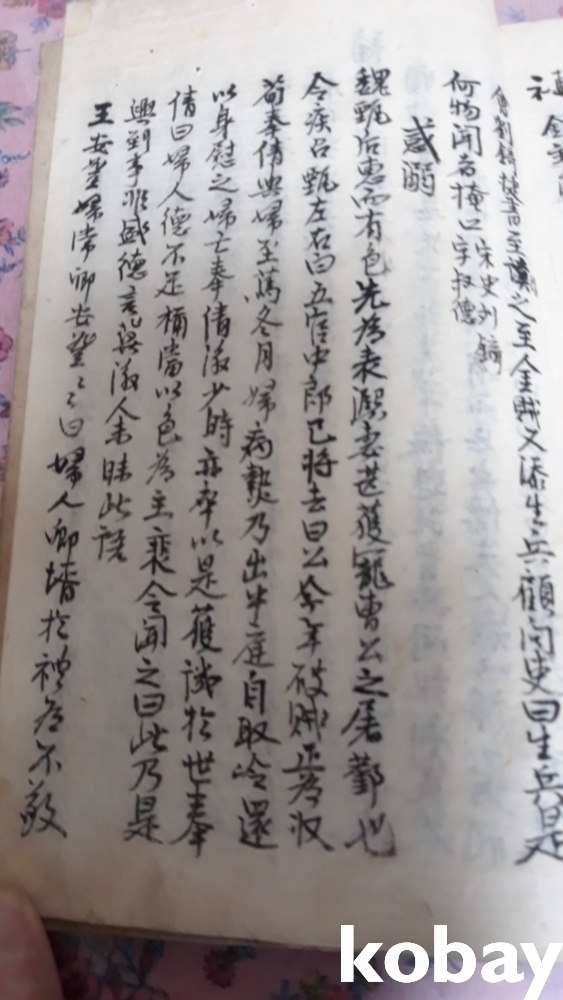 至金賊又添生兵顧問吏曰生兵是
何物聞者掩口 宋史列 字叔德
惑溺
魏甄后惠而有色先為袁熙妻甚獲寵曹公之屠鄴也
令疾召甄左右白五官中郎已將去曰公今年破賊正為奴
荀奉倩與婦至篤冬月婦病熱乃出中庭自取冷還
以身慰之婦亡奉倩後少時亦卒以是獲譏於世奉
倩曰婦人德不足稱當以色為主裴令聞之曰此乃是
興到事非盛德言冀後人未昧此語
王安豊婦常卿安豊々曰婦人卿壻於禮為不敬
kobay